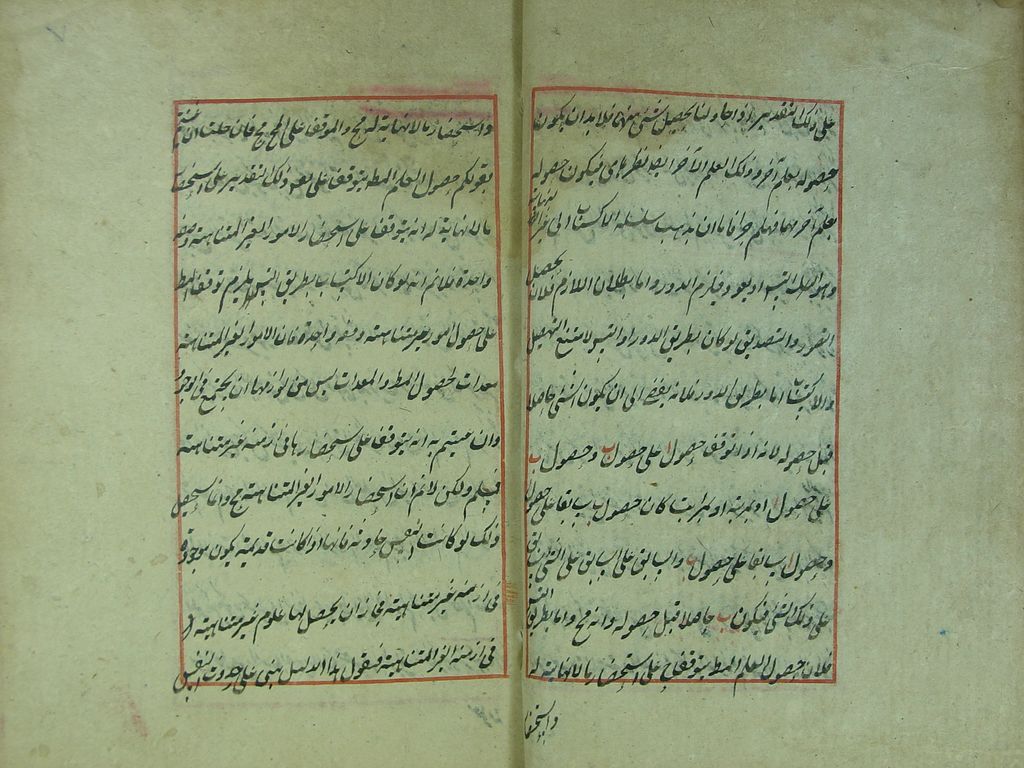 على ذلك التقدير اذا حاولنا تحصيل شئ منها فلا بد ان يكون
حصوله بعلم آخر وذلك العلم الآخر ايضا نظرى فيكون حصوله
بعلم آخر وهلم جرا فاما ان يذهب سلسلة الاكتساب الى غير النهاية
وهو التسلسل او يعود فيلزم الدور واما بطلان اللازم فلان تحصيل
التصور والتصديق لو كان بطريق الدور او التسلسل لامتنع التحصيل
والاكتساب اما بطريق الدور فلانه يفضى الى ان يكون الشئ حاصلا
قبل حصوله لانه اذا توقف حصول ا على حصول ب وحصول ب
على حصول ا اما بمرتبة او بمراتب كان حصول ب سابقا على حصول ا
وحصول ا سابقا على حصول ب والسابق على السابق على الشئ سابق
على ذلك الشئ فيكون ب حاصلا قبل حصوله وانه مح واما بطريق التسلسل
فلان حصول العلم المط يتوقف ح على استحضار ما لا نهاية له
واستحضا
واستحضار ما لا نهاية له مح والموقوف على المح مح فان قلت ان عنيتم
بقولكم حصول العلم المط يتوقف على ذلك التقدير على استحضار
ما لا نهاية له انه يتوقف على استحضار الامور الغير المتناهية دفعة
واحدة فلا نم انه لو كان الاكتساب بطريق التسلسل يلزم توقف المط
على حصول امور غير متناهية دفعة واحدة فان الامور الغير المتناهية
معدات لحصول المط والمعدات ليس من لوازمها ان يجتمع فى الوجود
وان عنيتم به انه يتوقف على استحضارها فى ازمنة غير متناهية
فمسلم ولكن لا نم ان استحضار الامور الغير المتناهية مح وانما يستحيل
ذلك لو كانت النفس حادثة فانها اذا كانت قديمة يكون موجودة
فى ازمنة غير متناهية فجاز ان يحصل لها علوم غير متناهية
فى ازمنة الغير المتناهية فنقول هذا الدليل مبنى على حدوث النفس